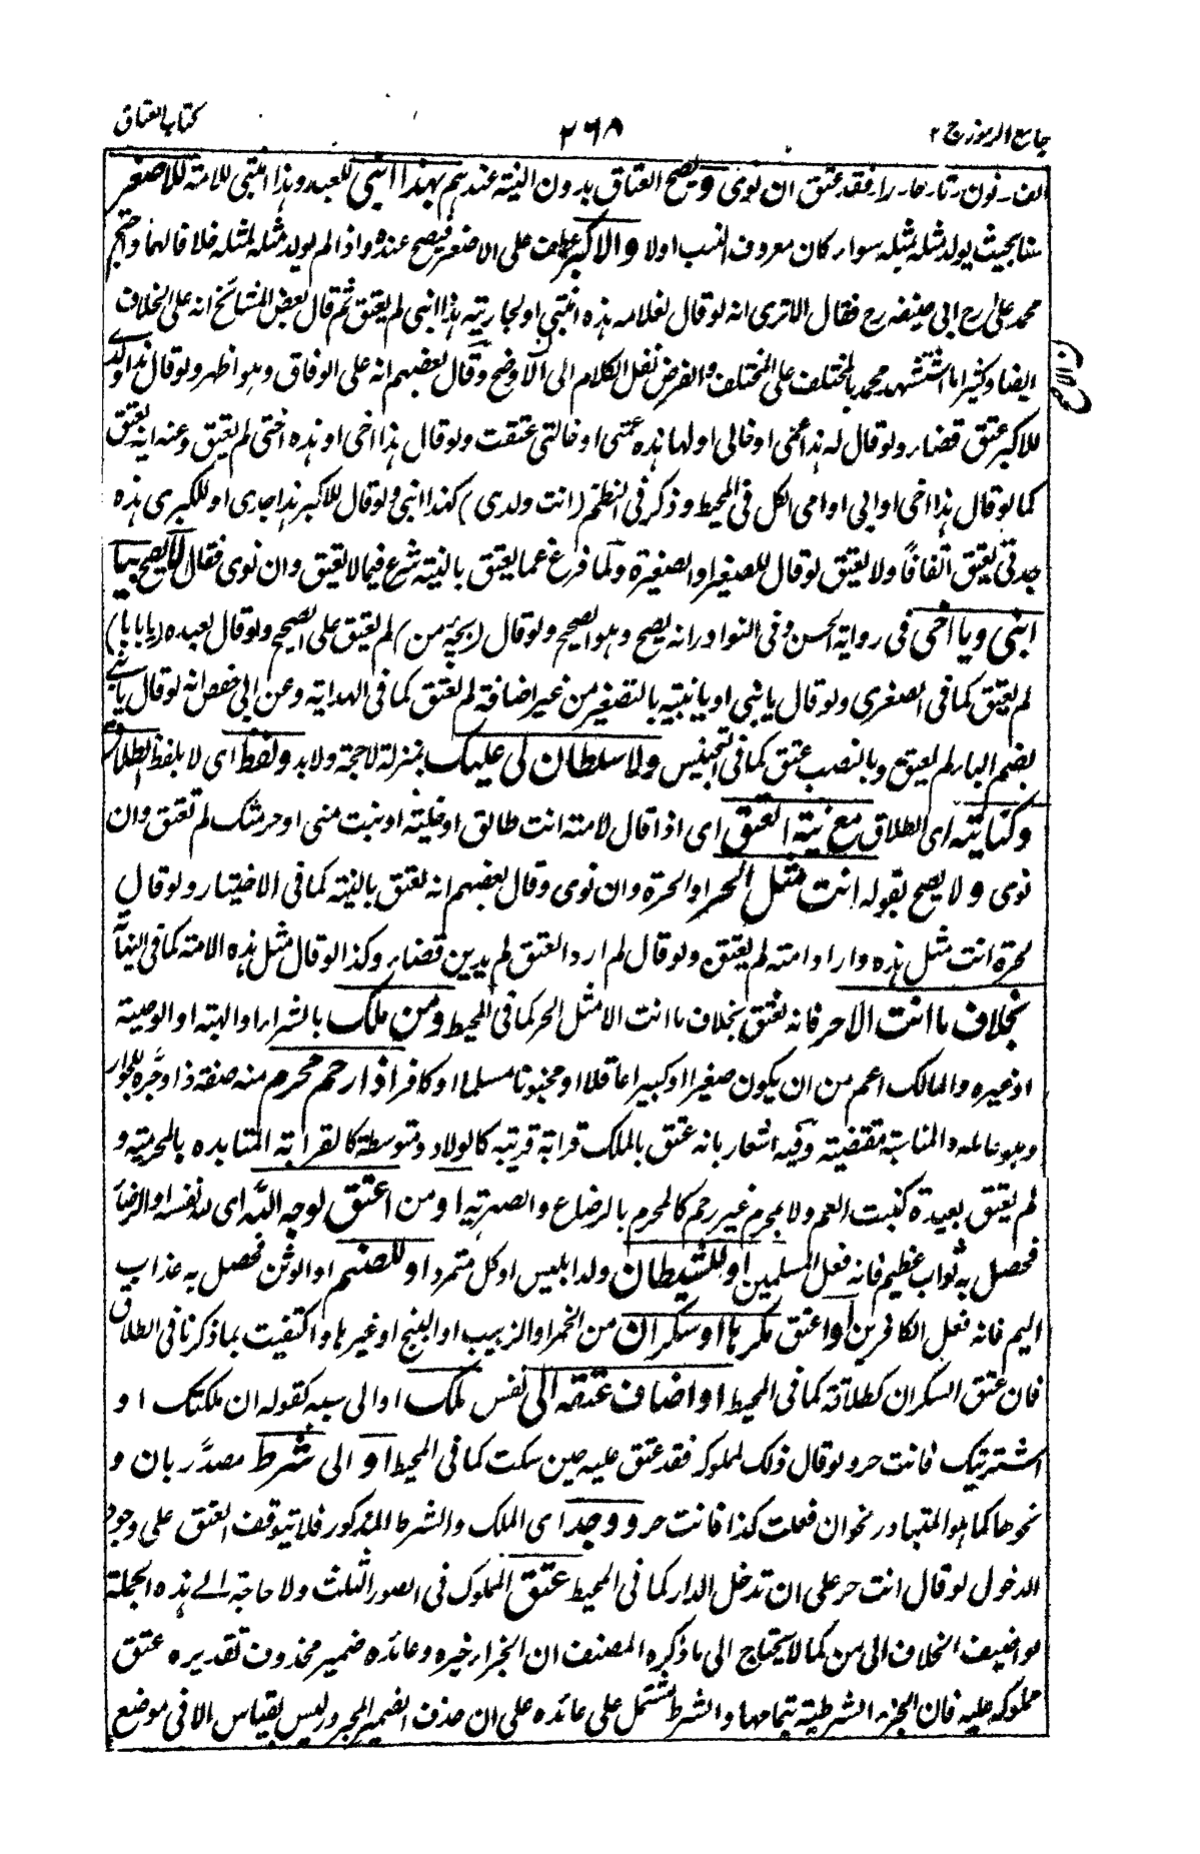 جامع الرموز ج ٢
٢٦٨
كتاب العتاق
الف نون تا حا را فقد عتق ان نوى ويصح العتاق بدون النية عندهم بهذا ابنى للعبد وهذا بنتى للامة للاصغر
سنا بحيث يولد مثله بمثله سواء كان معروف النسب اولا والاكبر عطف على الاصغر فيصح عنده واذا لم يولد مثله لمثله خلافا لهما واحتج
محمد على رح ابى حنيفة رح فقال الا ترى انه لو قال لغلامه هذه ابنتى او لجاريته هذا ابنى لم يعتق ثم قال بعض المشائخ انه على الخلاف
ايضا وكثيرا ما استشهد محمد بالمختلف على المختلف والغرض نقل الكلام الى الاوضح وقال بعضهم انه على الوفاق وهو اظهر ولو قال هذا ولدى
للاكبر عتق قضاء ولو قال له هذا عمى او خالى او لها هذه عمتى او خالتى عتقت ولو قال هذا اخى او هذه اختى لم يعتق وعنه انه يعتق
كما لو قال هذا اخى او ابى او امى الكل فى المحيط وذكر فى النظم (انت ولدى) كهذا ابنى ولو قال للاكبر هذا جدى او للكبرى هذه
جدتى يعتق اتفاقا ولا يعتق لو قال للصغير او الصغيرة ولما فرغ عما يعتق بالنية شرع فيما لا يعتق وان نوى فقال لا يصح بيا
ابنى ويا اخى فى رواية الحسن وفى النوادر انه يصح وهو الصحيح ولو قال (بچهٔ من) لم يعتق على الصحيح ولو قال لعبده (يا بابا)
لم يعتق كما فى الصغرى ولو قال يا بنى او يا بنية بالتصغير من غير اضافة لم يعتق كما فى الهداية وعن ابى حفص انه لو قال يا بنى
بضم الياء لم يعتق وبالنصب عتق كما فى التجنيس ولا سلطان لى عليك بمنزلة لا حجة ولا يد ولفظ اى لا بلفظ الطلاق
وكنايته اى الطلاق مع نية العتق اى اذا قال لامته انت طالق او خلية او بنت منى او حرمتك لم تعتق وان
نوى ولا يصح بقوله انت مثل الحر او الحرة وان نوى وقال بعضهم انه يعتق بالنية كما فى الاختيار ولو قال
لحرة انت مثل هذه واراد امته لم يعتق ولو قال لم ارد العتق لم يدين قضاء وكذا لو قال مثل هذه الامة كما فى النهاية
بخلاف ما انت الا حر فانه يعتق بخلاف ما انت الا مثل الحر كما فى المحيط ومن ملك بالشراء او الهبة او الوصية
او غيره والمالك اعم من ان يكون صغيرا او كبيرا عاقلا او مجنونا مسلما او كافرا ذا رحم محرم منه صفة ذا وجره للجوار
وهو عامله والمناسبة مقتضية وفيه اشعار بانه عتق بالملك قرابة قريبة كالولاد ومتوسطة كالقرابة المتأبدة بالمحرمية و
لم يعتق بعيدة كبنت العم ولا بمحرم غير رحم كالمحرم بالرضاع والصهرية او من اعتق لوجه الله اى لله نفسه او الرضا
فحصل به ثواب عظيم فانه فعل المسلمين او للشيطان ولد ابليس او كل متمرد او للصنم او الوثن فحصل به عذاب
اليم فانه فعل الكافرين او اعتق مكرها او سكران من الخمر او الزبيب او البنج او غيرها واكتفيت بما ذكرنا فى الطلاق
فان عتق السكران كطلاقه كما فى المحيط او اضاف عتقه الى نفس ملك او الى سببه كقوله ان ملكتك او
اشتريتك فانت حر ولو قال ذلك لمملوكه فقد عتق عليه حين سكت كما فى المحيط او الى شرط مصدر بان و
نحوها كما هو المتبادر نحو ان فعلت كذا فانت حر ووجد اى الملك والشرط المذكور فلا يتوقف العتق على وجود
الدخول لو قال انت حر على ان تدخل الدار كما فى المحيط عتق المملوك فى الصور الثلث ولا حاجة الى هذه الجملة
لو اضيف الخلاف الى من كما لا يحتاج الى ما ذكره المصنف ان الجزاء خبره وعائده ضمير محذوف تقديره عتق
مملوكه عليه فان الجزء الشرطية بتمامها والشرط مشتمل على عائده على ان حذف الضمير المجرور ليس بقياس الا فى موضع